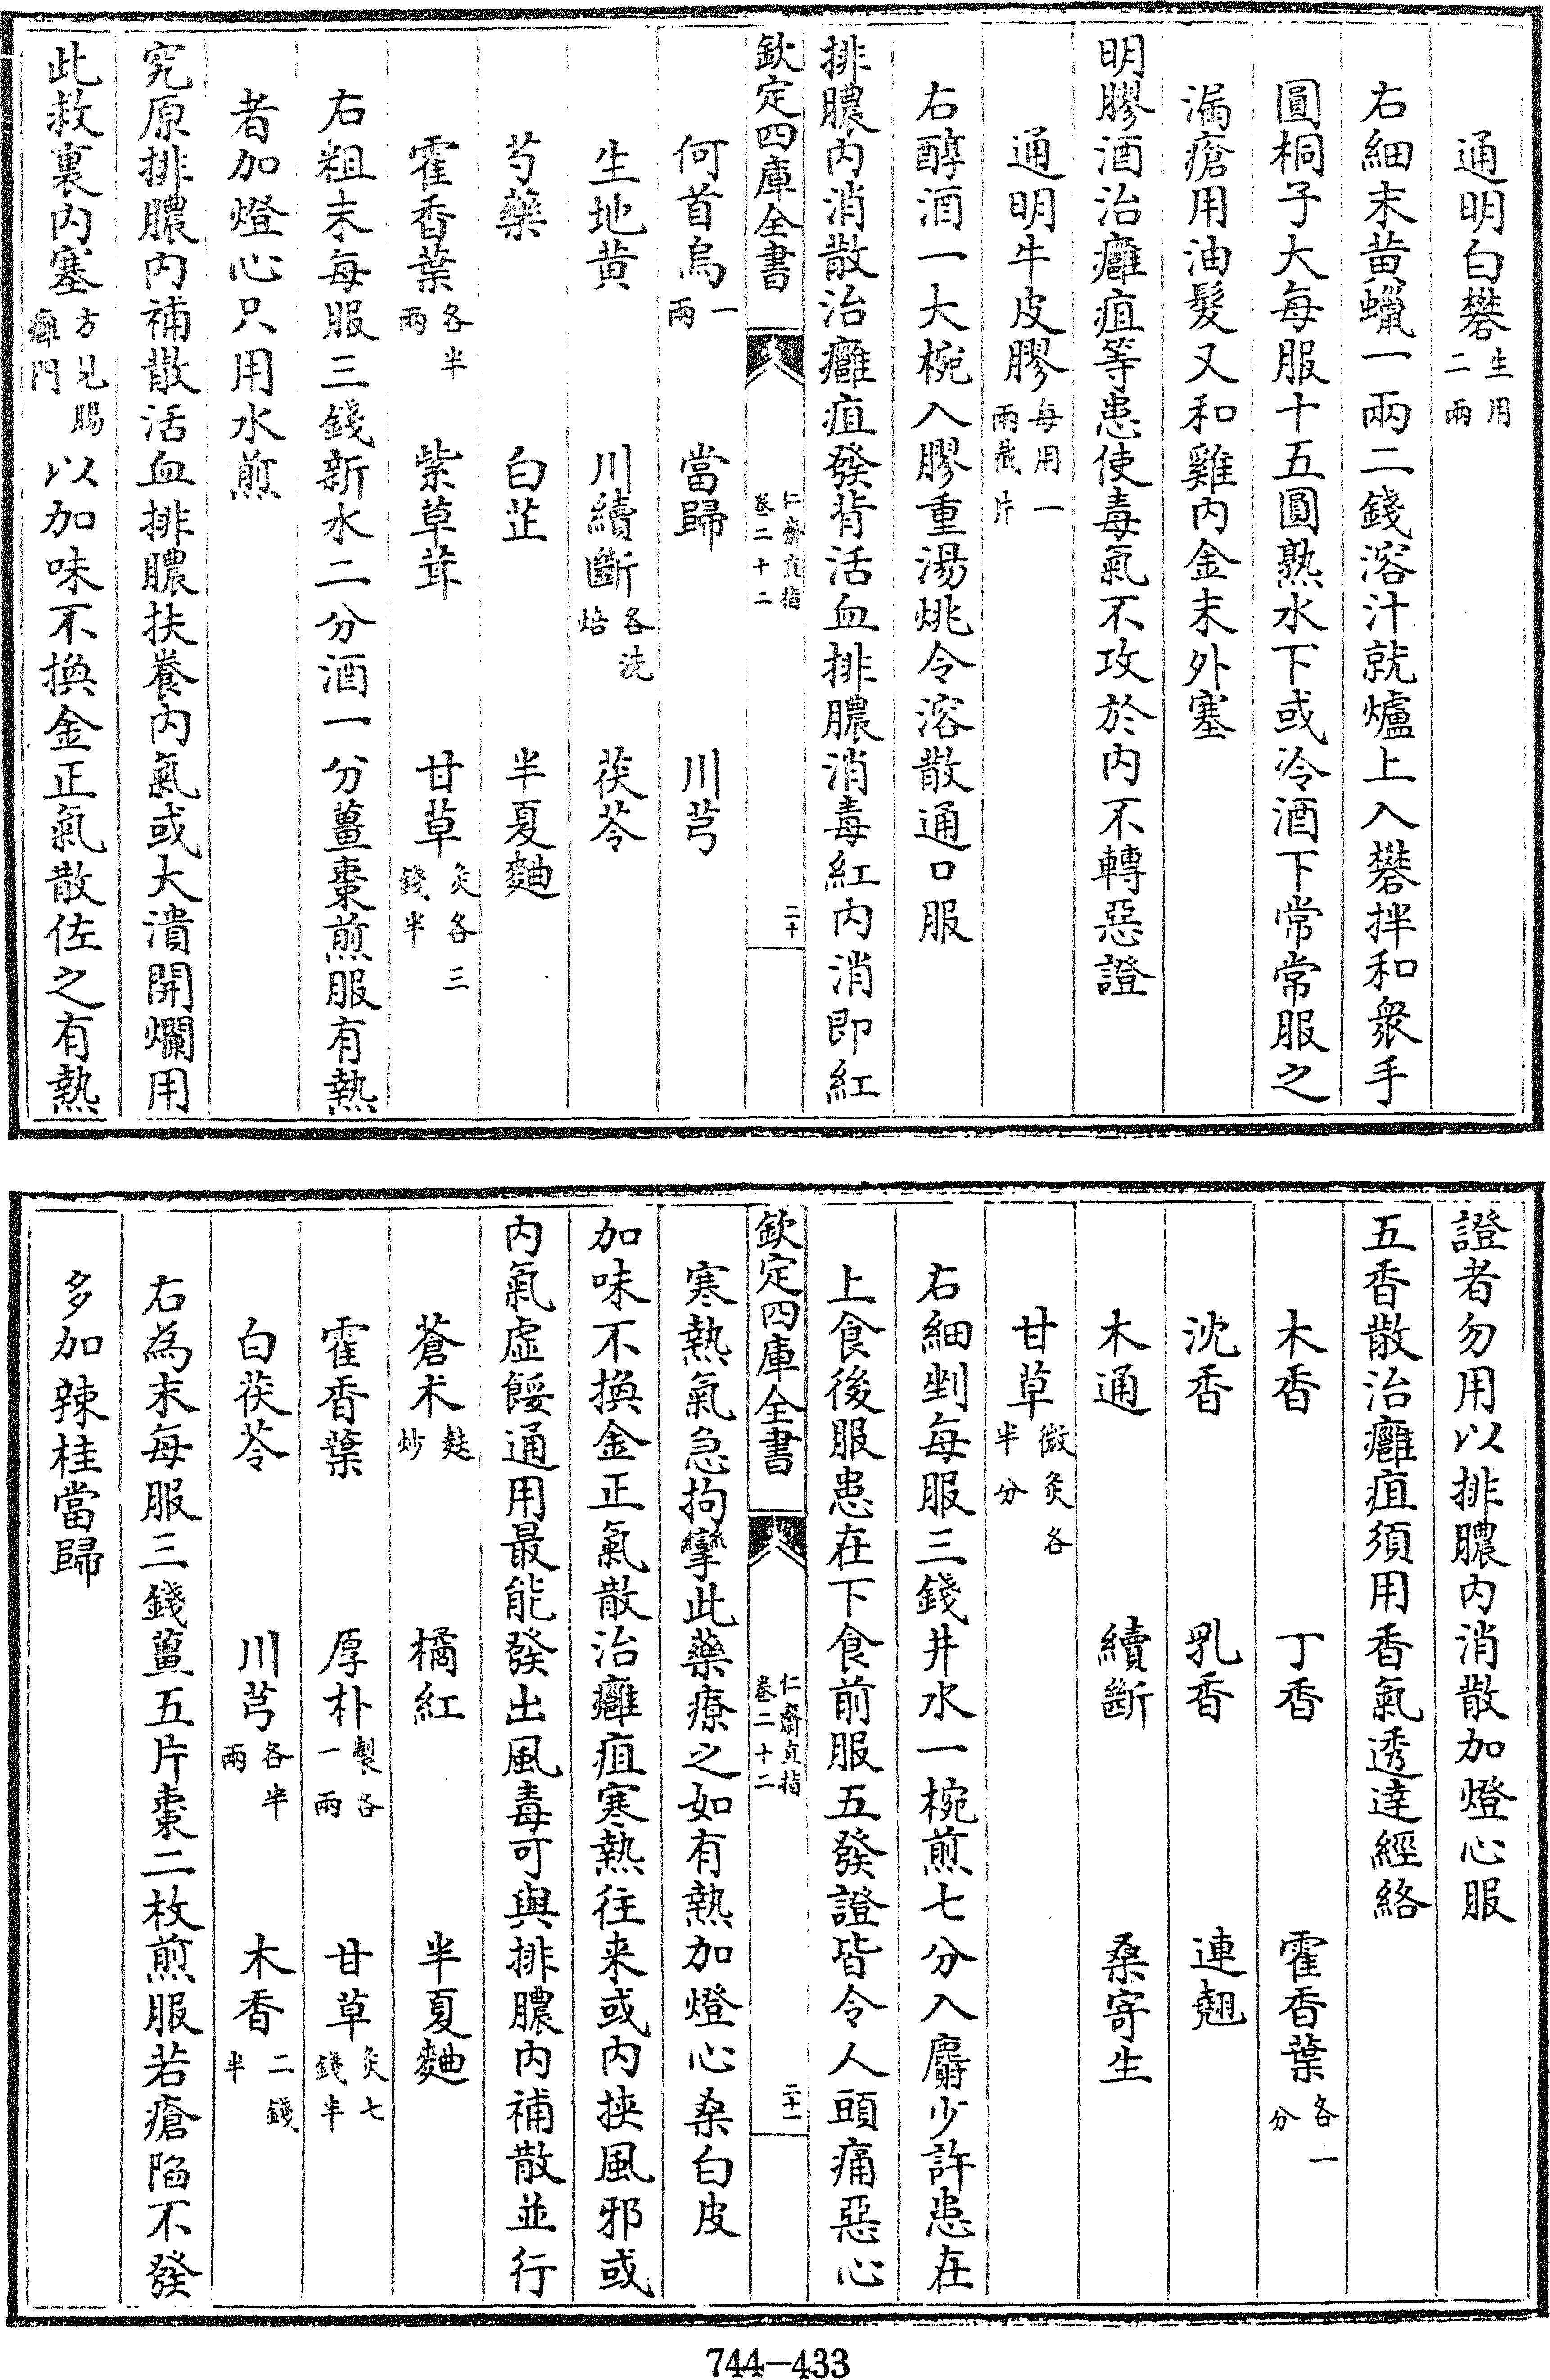 通明白礬生用二兩
右細末黄蠟一兩二錢溶汁就爐上入礬拌和衆手
圓桐子大每服十五圓熟水下或冷酒下常常服之
漏瘡用油髮又和雞内金末外塞
明膠酒治癰疽等患使毒氣不攻於内不轉惡證
通明牛皮膠每用一兩裁片
右醇酒一大椀入膠重湯烑令溶散通口服
排膿内消散治癰疽發背活血排膿消毒紅内消即紅
欽定四庫全書 仁齋直指卷二十二 二十
何首烏一兩 當歸 川芎
生地黄 川續斷各洗焙 茯苓
芍藥 白芷 半夏麯
霍香葉各半兩 紫草茸 甘草炙各三錢半
右粗末每服三錢新水二分酒一分薑棗煎服有熱
者加燈心只用水煎
究原排膿内補散活血排膿扶養内氣或大潰開爛用
此救裏内塞方見腸癰門以加味不換金正氣散佐之有熱
證者勿用以排膿内消散加燈心服
五香散治癰疽須用香氣透達經絡
木香 丁香 霍香葉各一分
沈香 乳香 連翹
木通 續斷 桑寄生
甘草微炙各半分
右細剉每服三錢井水一椀煎七分入麝少許患在
上食後服患在下食前服五發證皆令人頭痛惡心
欽定四庫全書 仁齋直指卷二十二 二十一
寒熱氣急拘攣此藥療之如有熱加燈心桑白皮
加味不換金正氣散治癰疽寒熱往来或内挾風邪或
内氣虚餒通用最能發出風毒可與排膿内補散並行
蒼朮麩炒 橘紅 半夏麯
霍香葉 厚朴製各一兩 甘草炙七錢半
白茯苓 川芎各半兩 木香二錢半
右為末每服三錢薑五片棗二枚煎服若瘡陷不發
多加辣桂當歸
744-433